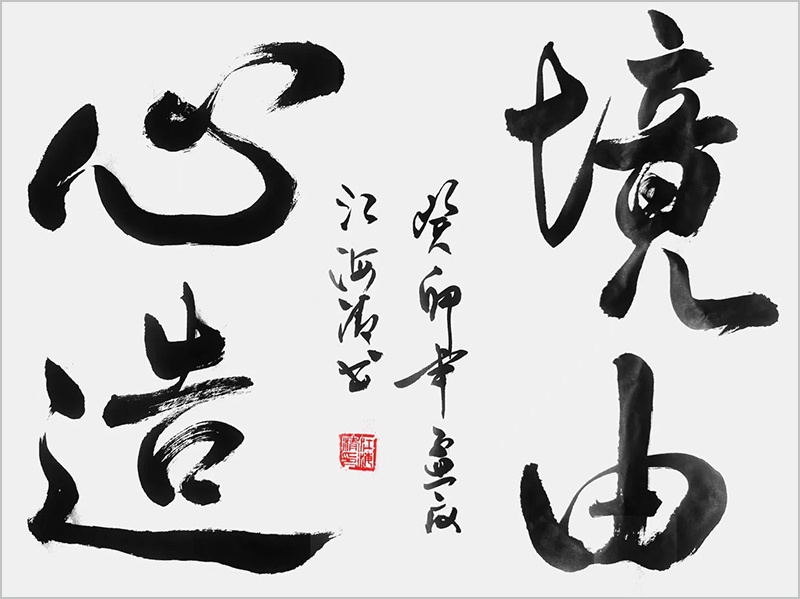 境由
心造
癸卯年孟夏
江海书